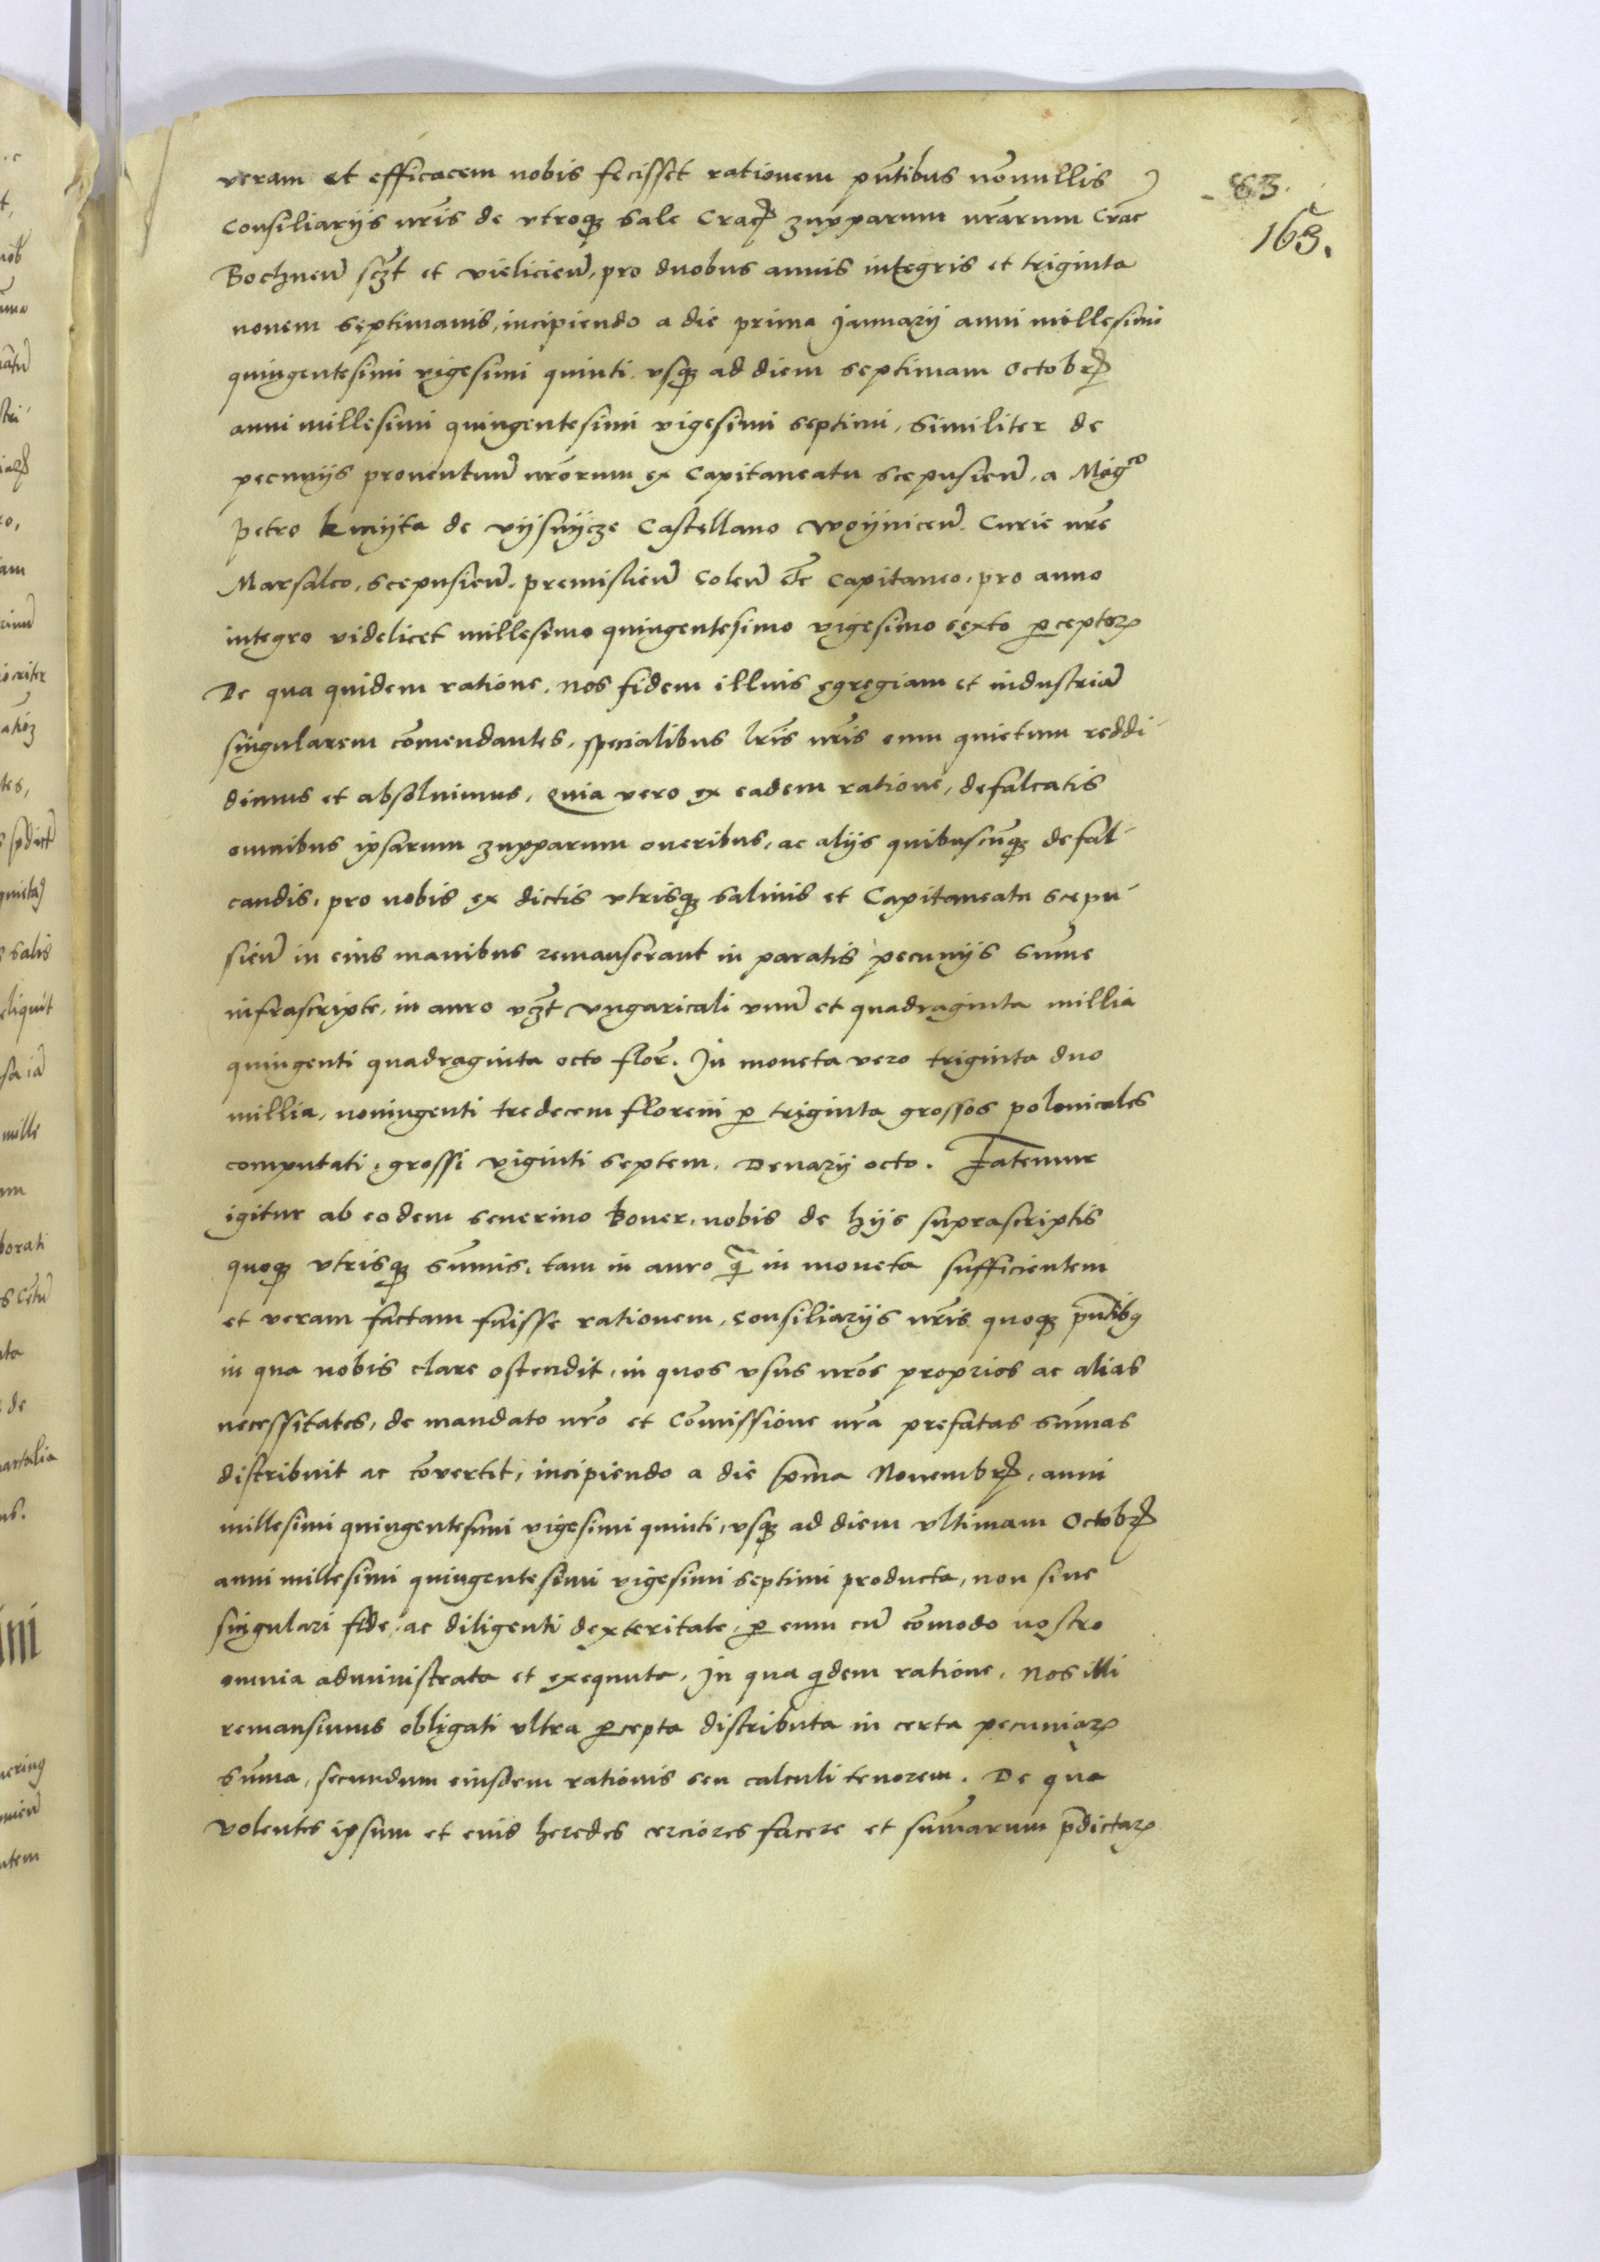 veram et efficacem nobis fecisset rationem pñtibus nõnullis
Consiliarijs nr̃is de vtroqꝫ sale Crac̃ zupparum nr̃arum Crac̃
Bochneñ scꝫt et vielicieñ, pro duobus annis integris et triginta
nouem septimanis, incipiendo a die prima Januarij anni millesimi
quingentesimi vigesimi quinti vsqꝫ ad diem septimam Octobr̃
anni millesimi quingentesimi vigesimi septimi, similiter de
pecunijs prouentuũ nr̃orum ex Capitaneatu scepusieñ, a Mag͠co
Petro kmijta de vijsnijcze Castellano woijniceñ Curie nr̃e
Marsalco, scepusieñ, premislieñ Coleñ c̃ Capitaneo, pro anno
integro videlicet millesimo quingentesimo vigesimo sexto ꝑceptoꝝ
De qua quidem ratione, nos fidem illius egregiam et industriã
singularem cõmendantes, specialibus lr̃is nr̃is eum quietum reddi-
dimus et absoluimus, Quia vero ex eadem ratione, defalcatis
omnibus ipsarum zupparum oneribus, ac alijs quibuscũqꝫ defal-
candis, pro nobis ex dictis vtrisqꝫ salinis et Capitaneatu scepu-
sieñ in eius manibus remanserant in paratis pecunijs sum̃e
infrascripte, in auro vꝫt vngaricali vnũ et quadraginta millia
quingenti quadraginta octo flor̃. In moneta vero triginta duo
millia, noningenti tredecem floreni ꝑ triginta grossos polonicales
computati, grossi viginti septem, Denarij octo. Fatemur
igitur ab eodem seuerino Boner, nobis de hijs suprascriptis
quoqꝫ vtrisqꝫ sum̃is, tam in auro q̃ in moneta sufficientem
et veram factam fuisse rationem, consiliarijs nr̃is quoqꝫ pñtibꝫ
in qua nobis clare ostendit, in quos vsus nr̃os proprios ac alias
necessitates, de mandato nr̃o et Com̃issione nr̃a prefatas sum̃as
distribuit ac cõuertit, incipiendo a die p̃ma Nouembr̃, anni
millesimi quingentesimi vigesimi quinti, vsqꝫ ad diem vltimam Octobr̃
anni millesimi quingentesimi vigesimi septimi producta, non sine
singulari fide, ac diligenti dexteritate, ꝑ eum cũ cõmodo nostro
omnia administrata et exequuta, In qua q̃dem ratione, Nos illi
remansimus obligati vltra ꝑcepta distributa in certa pecuniaꝝ
sum̃a, secundum eiusdem rationis seu calculi tenorem. De qua
volentes ipsum et eius heredes cerciores facere et sum̃arum p̃dictaꝝ
63.
163.